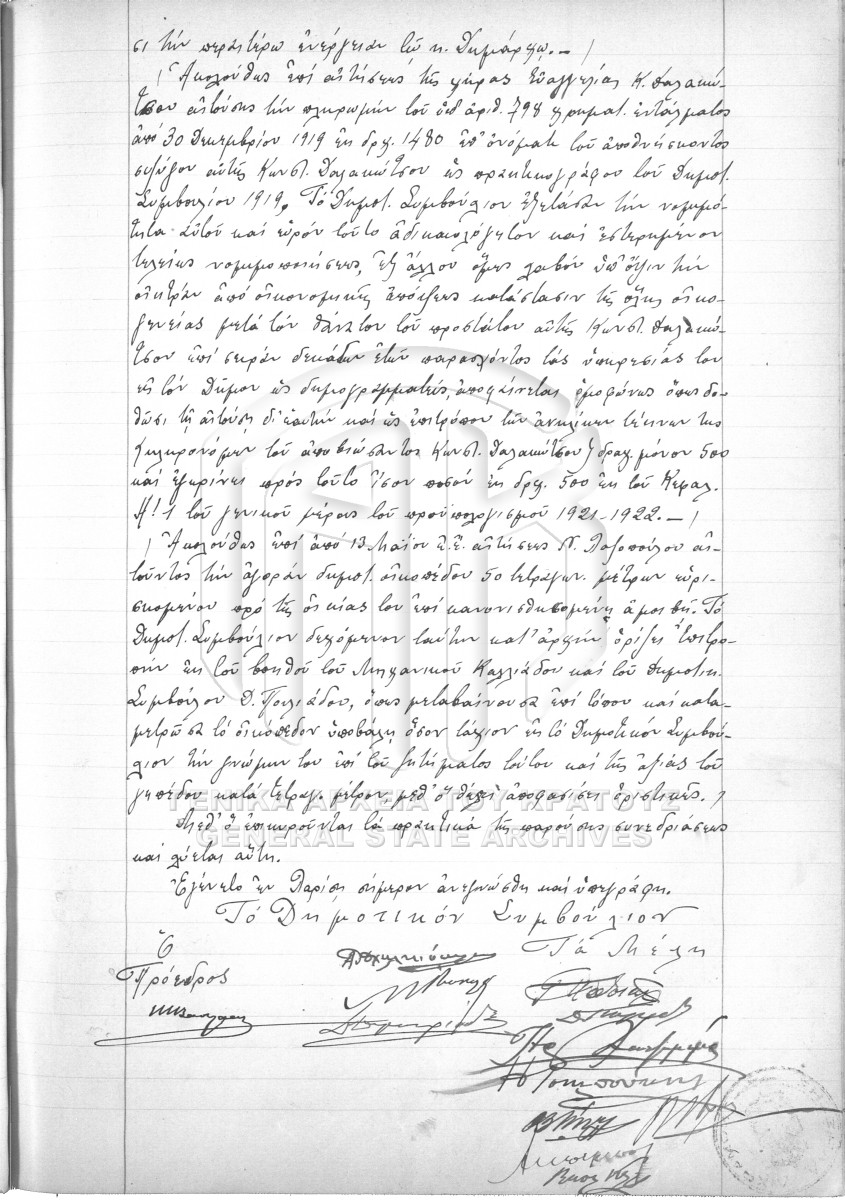 σι τὴν περαιτέρω ἐνέργειαν τῷ κ. Δημάρχῳ.— /
/ Ἀκολούθως ἐπὶ αἰτήσεως τῆς χήρας Εὐαγγελίας Κ. Δαλακώ-
τσου αἰτούσης τὴν πληρωμὴν τοῦ ὑπ' ἀριθ. 798 χρηματ. ἐντάλματος
ἀπὸ 30 Δεκεμβρίου 1919 ἐκ δρχ. 1480 ἐπ' ὀνόματι τοῦ ἀποθνήσκοντος
συζύγου αὐτῆς Κωνστ. Δαλακώτσου ὡς πρακτικογράφου τοῦ Δημοτ.
Συμβουλίου 1919, Τὸ Δημοτ. Συμβούλιον ἐξετάσαν τὴν νομιμό-
τητα αὐτοῦ καὶ εὑρὸν τοῦτο ἀδικαιολόγητον καὶ ἐστερημένον
τελείως νομιμοποιήσεως, ἐξ ἄλλου ὅμως λαβὸν ὑπ' ὄψιν τὴν
οἰκτρὰν ἀπὸ οἰκονομικῆς ἀπόψεως κατάστασιν τῆς ὅλης οἰκο-
γενείας μετὰ τὸν θάνατον τοῦ προστάτου αὐτῆς Κωνστ. Δαλακώ-
τσου ἐπὶ σειρὰν δεκάδων ἐτῶν παρασχόντος τὰς ὑπηρεσίας του
εἰς τὸν Δῆμον ὡς δημογραμματεὺς ἀποφαίνεται ὁμοφώνως ὅπως δο-
θῶσι τῇ αἰτούσῃ δι' ἑαυτὴν καὶ ὡς ἐπιτρόπου τῶν ἀνηλίκων τέκνων της
κληρονόμων τοῦ ἀποβιώσαντος Κωνστ. Δαλακώτσου δραχ. μόνον 500
καὶ ἐγκρίνει πρὸς τοῦτο ἴσον ποσὸν ἐκ δρχ. 500 ἐκ τοῦ Κεφαλ.
Η! 1 τοῦ γενικοῦ μέρους τοῦ προϋπολογισμοῦ 1921-1922.— /
/ Ἀκολούθως ἐπὶ ἀπὸ 13 Μαΐου ἐ.ἔ. αἰτήσεως Ν. αἰ-
τοῦντος τὴν ἀγορὰν δημοτ. οἰκοπέδου 50 τετραγων. μέτρων εὑρι-
σκομένου πρὸ τῆς οἰκίας του ἐπὶ κανονισθησομένῃ ἀμοιβῇ. Τὸ
Δημοτ. Συμβούλιον δεχόμενον ταύτην κατ' ἀρχὴν ὁρίζει Ἐπιτρο-
πὴν ἐκ τοῦ βοηθοῦ τοῦ Μηχανικοῦ Καλλιάδου καὶ τοῦ Δημοτικ.
Συμβούλου Δ. ὅπως μεταβαίνουσα ἐπὶ τόπου καὶ κατα-
μετρῶσα τὸ οἰκόπεδον ὑποβάλῃ ὅσον τάχιον εἰς τὸ Δημοτικὸν Συμβού-
λιον τὴν γνώμην του ἐπὶ τοῦ ζητήματος τούτου καὶ τῆς ἀξίας τοῦ
γηπέδου κατὰ τετραγ. μέτρον μεθ' ὃ θέλει ἀποφασίσει ὁριστικῶς. /
Μεθ' ὃ ἐπικυροῦνται τὰ πρακτικὰ τῆς παρούσης συνεδριάσεως
καὶ λύεται αὕτη.
Ἐγένετο ἐν Λαρίσῃ σήμερον ἀνεγνώσθη καὶ ὑπεγράφη.
Τὸ Δημοτικὸν Συμβούλιον
Ὁ Τὰ Μέλη
Πρόεδρος
ΓΕΝΙΚΑ ΑΡΧΕΙΑ ΤΟΥ ΚΡΑΤΟΥΣ
GENERAL STATE ARCHIVES